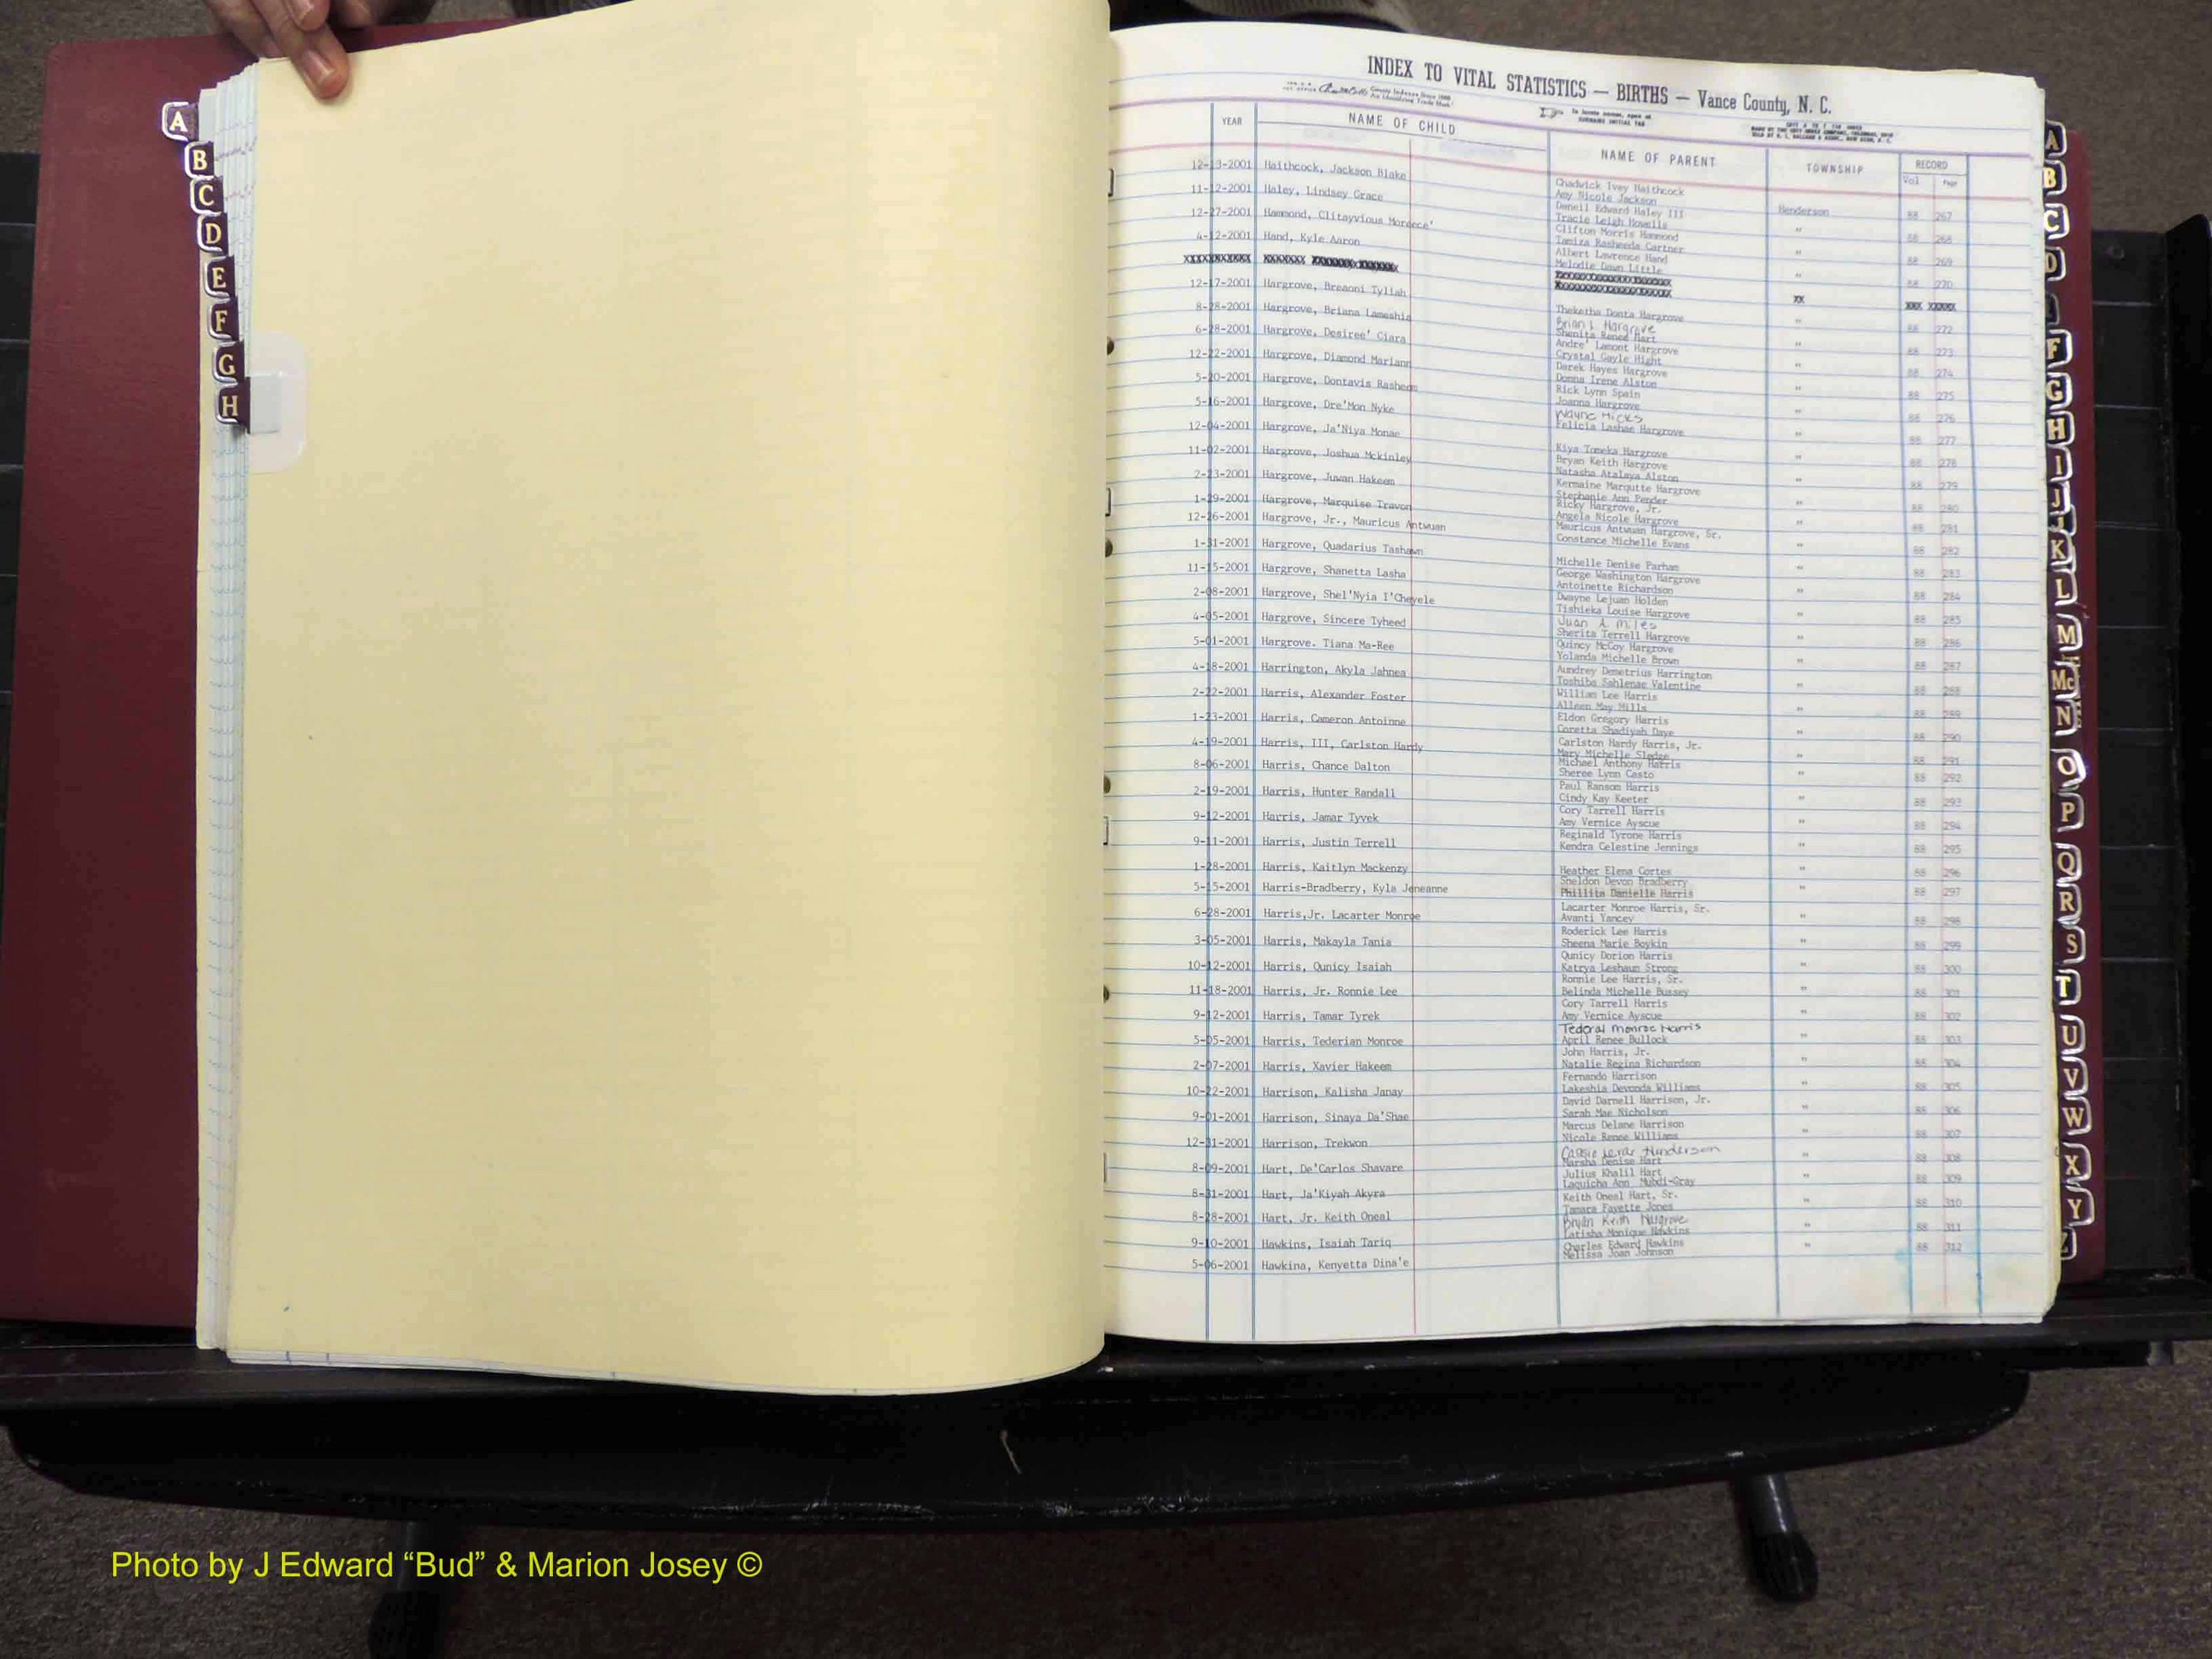 INDEX TO VITAL STATISTICS — BIRTHS — Vance County, N. C.
YEAR NAME OF CHILD NAME OF PARENT TOWNSHIP RECORD
Vol Page
12-13-2001 Haithcock, Jackson Blake Chadwick Ivey Haithcock
Amy Nicole Jackson Henderson 88 267
11-12-2001 Haley, Lindsey Grace Daneil Edward Haley III
Tracie Leigh Howells " 88 268
12-27-2001 Hammond, Clitayvious Mordece' Clifton Morris Hammond
Tamira Rasheeda Cartner " 88 269
4-12-2001 Hand, Kyle Aaron Albert Lawrence Hand
Melodie Dawn Little " 88 270
12-17-2001 Hargrove, Breaoni Tyliah Theketha Donta Hargrove " 88 272
8-28-2001 Hargrove, Briana Lameshia Brian L Hargrove
Shenita Renee Hart " 88 273
6-28-2001 Hargrove, Desiree' Ciara Andre' Lamont Hargrove
Crystal Gayle Hight " 88 274
12-22-2001 Hargrove, Diamond Mariann Derek Hayes Hargrove
Donna Irene Alston " 88 275
5-20-2001 Hargrove, Dontavis Rasheem Rick Lynn Spain
Joanna Hargrove " 88 276
5-16-2001 Hargrove, Dre'Mon Nyke Wayne Hicks
Felicia Lashae Hargrove " 88 277
12-04-2001 Hargrove, Ja'Niya Monae Kiya Tomeka Hargrove " 88 278
11-02-2001 Hargrove, Joshua Mckinley Bryan Keith Hargrove
Natasha Atalaya Alston " 88 279
2-23-2001 Hargrove, Juwan Hakeem Kermaine Marqutte Hargrove
Stephanie Ann Pender " 88 280
1-29-2001 Hargrove, Marquise Travon Ricky Hargrove, Jr.
Angela Nicole Hargrove " 88 281
12-26-2001 Hargrove, Jr., Mauricus Antwuan Mauricus Antwuan Hargrove, Sr.
Constance Michelle Evans " 88 282
1-31-2001 Hargrove, Quadarius Tashawn Michelle Denise Parham " 88 283
11-15-2001 Hargrove, Shanetta Lasha George Washington Hargrove
Antoinette Richardson " 88 284
2-08-2001 Hargrove, Shel'Nyia I'Cheyele Dwayne Lejuan Holden
Tishieka Louise Hargrove " 88 285
4-05-2001 Hargrove, Sincere Tyheed Juan A. Miles
Sherita Terrell Hargrove " 88 286
5-01-2001 Hargrove. Tiana Ma-Ree Quincy McCoy Hargrove
Yolanda Michelle Brown " 88 287
4-18-2001 Harrington, Akyla Jahnea Aundrey Demetrius Harrington
Toshiba Sahlenae Valentine " 88 288
2-22-2001 Harris, Alexander Foster William Lee Harris
Alleen May Mills " 88 289
1-23-2001 Harris, Cameron Antoinne Eldon Gregory Harris
Coretta Shadiyah Daye " 88 290
4-19-2001 Harris, III, Carlston Hardy Carlston Hardy Harris, Jr.
Mary Michelle Sledge " 88 291
8-06-2001 Harris, Chance Dalton Michael Anthony Harris
Sheree Lynn Casto " 88 292
2-19-2001 Harris, Hunter Randall Paul Ransom Harris
Cindy Kay Keeter " 88 293
9-12-2001 Harris, Jamar Tyvek Cory Tarrell Harris
Amy Vernice Ayscue " 88 294
9-11-2001 Harris, Justin Terrell Reginald Tyrone Harris
Kendra Celestine Jennings " 88 295
1-28-2001 Harris, Kaitlyn Mackenzy Heather Elena Cortes " 88 296
5-15-2001 Harris-Bradberry, Kyla Jeneanne Sheldon Devon Bradberry
Phillita Danielle Harris " 88 297
6-28-2001 Harris,Jr. Lacarter Monroe Lacarter Monroe Harris, Sr.
Avanti Yancey " 88 298
3-05-2001 Harris, Makayla Tania Roderick Lee Harris
Sheena Marie Boykin " 88 299
10-12-2001 Harris, Qunicy Isaiah Qunicy Dorion Harris
Katrya Leshaun Strong " 88 300
11-18-2001 Harris, Jr. Ronnie Lee Ronnie Lee Harris, Sr.
Belinda Michelle Bussey " 88 301
9-12-2001 Harris, Tamar Tyrek Cory Tarrell Harris
Amy Vernice Ayscue " 88 302
5-05-2001 Harris, Tederian Monroe Tederal Monroe Harris
April Renee Bullock " 88 303
2-07-2001 Harris, Xavier Hakeem John Harris, Jr.
Natalie Regina Richardson " 88 304
10-22-2001 Harrison, Kalisha Janay Fernando Harrison
Lakeshia Devonda Williams " 88 305
9-01-2001 Harrison, Sinaya Da'Shae David Darnell Harrison, Jr.
Sarah Mae Nicholson " 88 306
12-31-2001 Harrison, Trekwon Marcus Delane Harrison
Nicole Renee Williams " 88 307
8-09-2001 Hart, De'Carlos Shavare Henderson
Marsha Denise Hart " 88 308
8-31-2001 Hart, Ja'Kiyah Akyra Julius Khalil Hart
Laquicha Ann Muhdi-Gray " 88 309
8-28-2001 Hart, Jr. Keith Oneal Keith Oneal Hart, Sr.
Tamara Fayette Jones " 88 310
9-10-2001 Hawkins, Isaiah Tariq Bryan Keith
Latisha Monique Hawkins " 88 311
5-06-2001 Hawkina, Kenyetta Dina'e Charles Edward Hawkins
Melissa Joan Johnson " 88 312
A
B
C
D
E
F
G
H
A
B
C
D
F
G
H
I
J
K
L
M
Mc
N
O
P
Q
R
S
T
U
V
W
X
Y
Z
Photo by J Edward “Bud” & Marion Josey ©